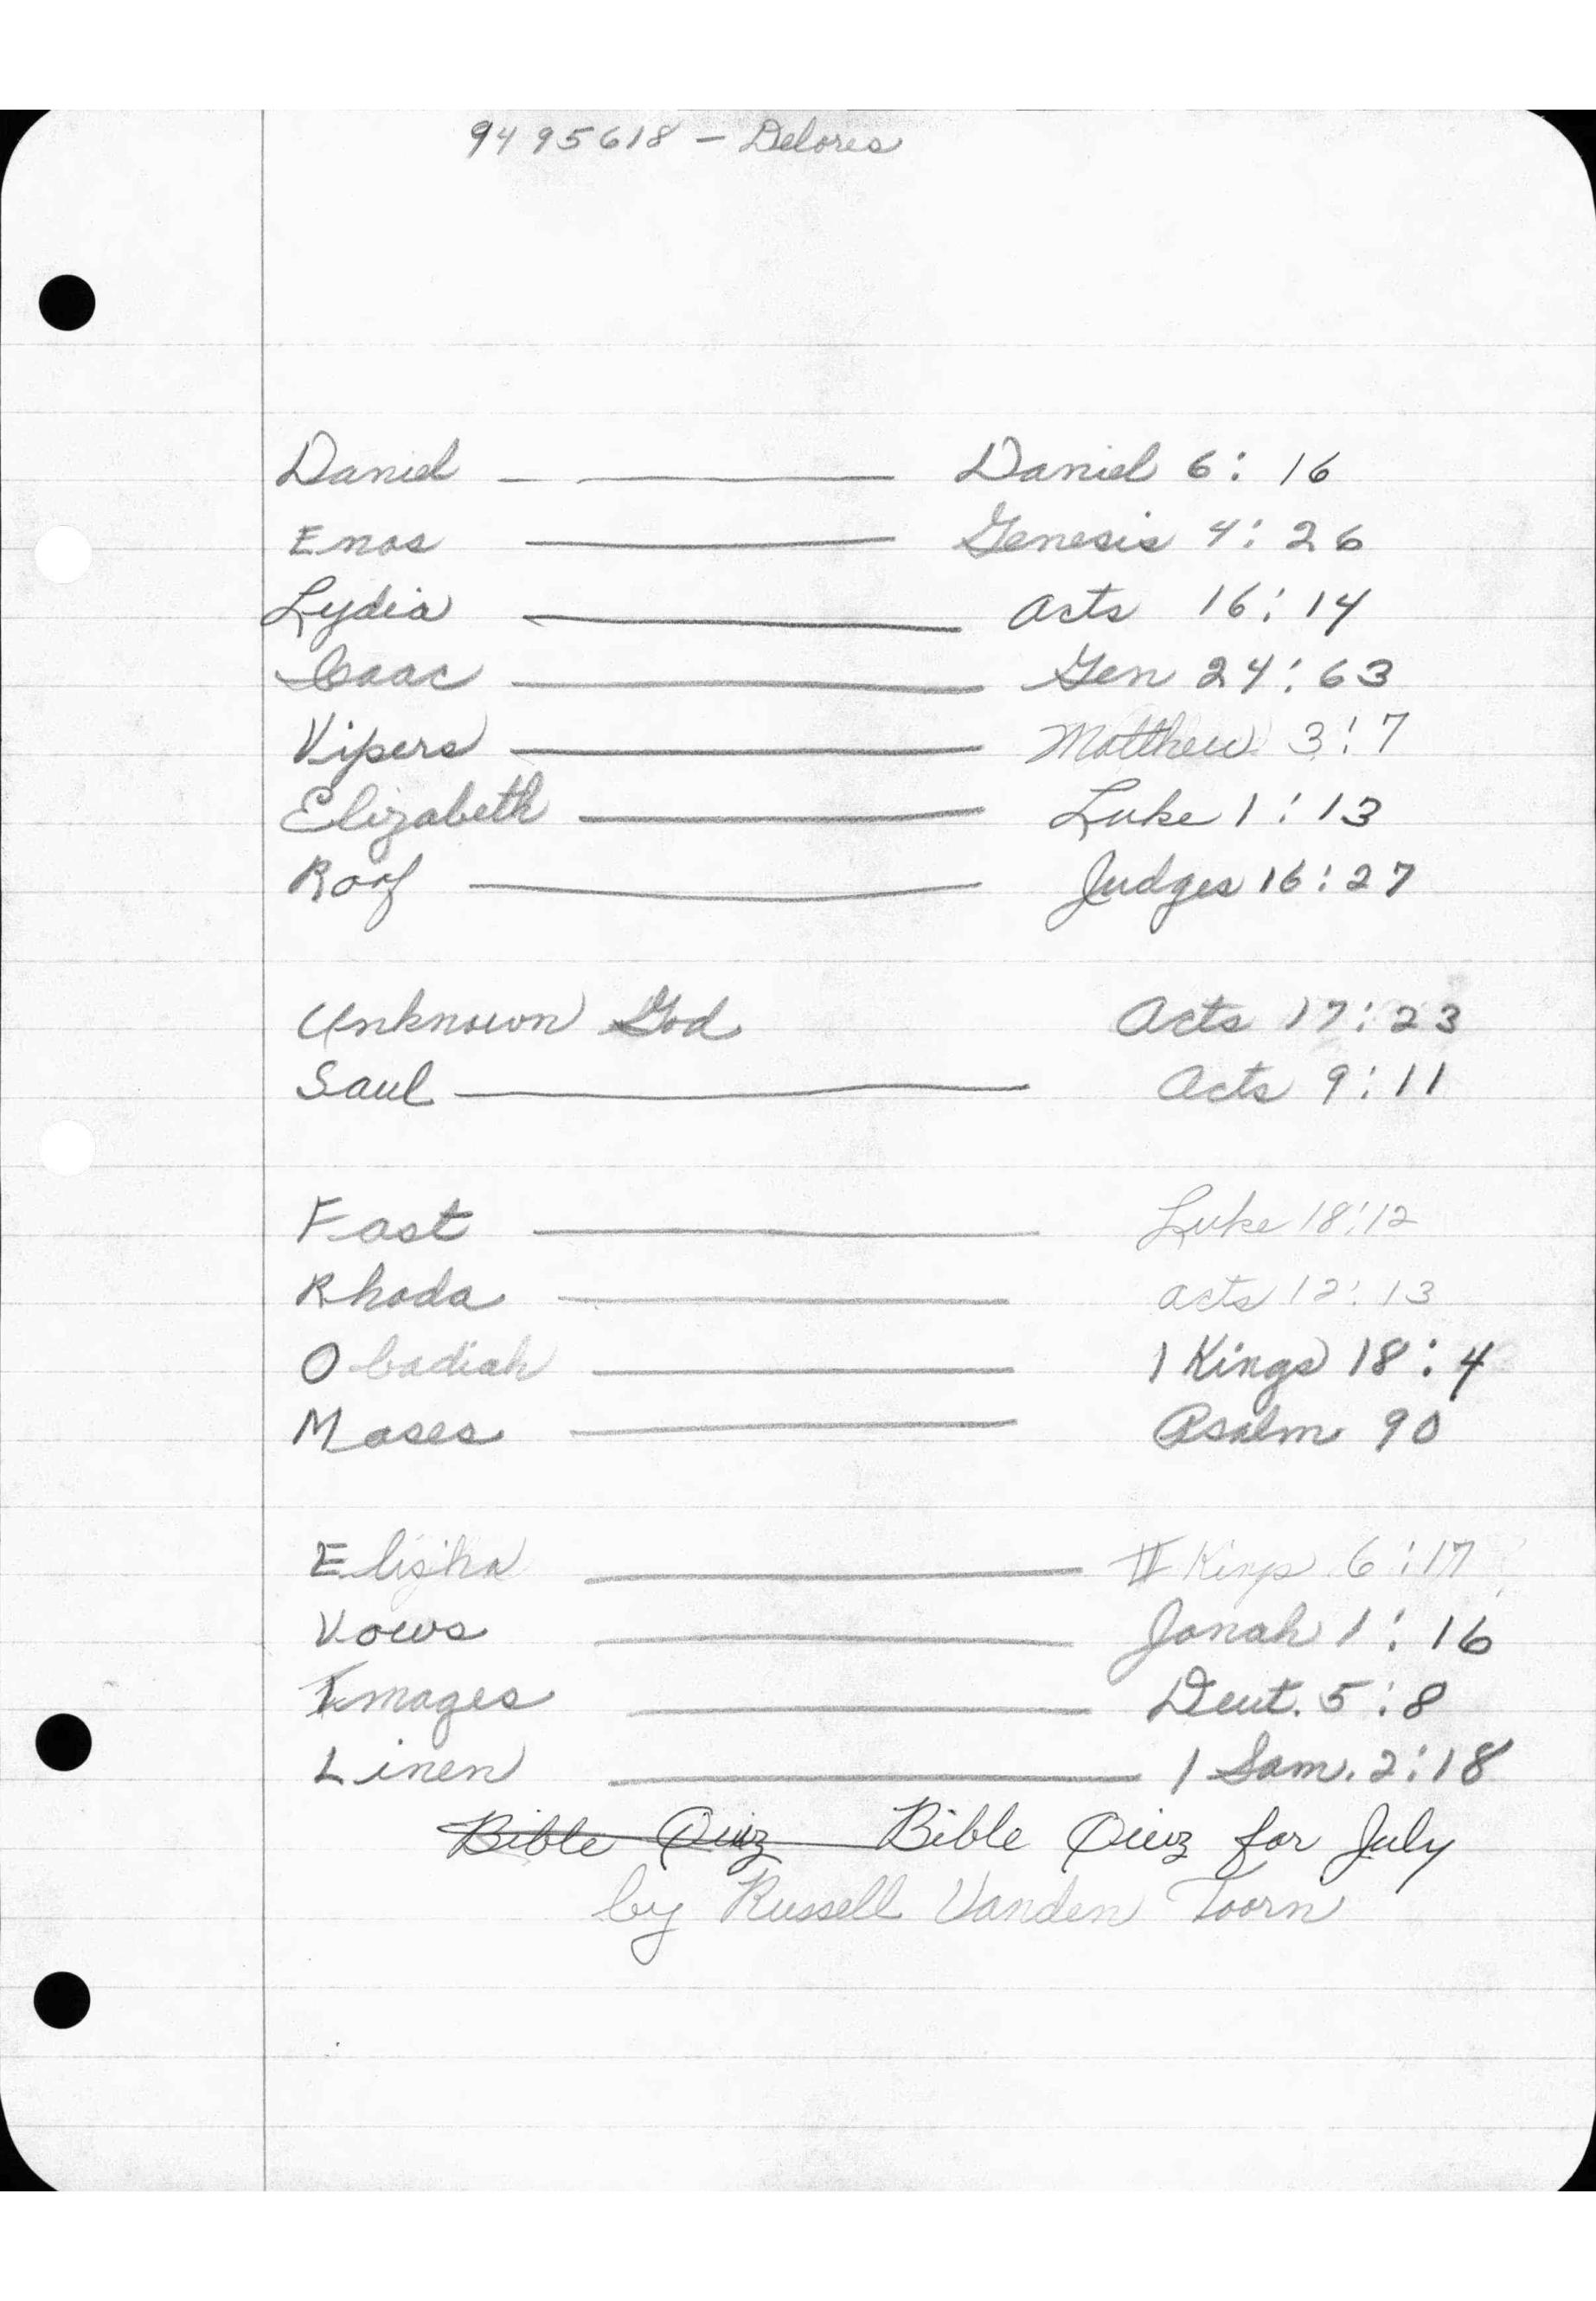 9495618 - Delores
Daniel - — Daniel 6: 16
Enos — Genesis 4: 26
Lydia — Acts 16: 14
Isaac — Gen 24: 63
Vipers — Matthew 3: 7
Elizabeth — Luke 1: 13
Roof — Judges 16: 27
Unknown God Acts 17: 23
Saul — Acts 9: 11
Fast — Luke 18:12
Rhoda — Acts 12: 13
Obadiah — 1 Kings 18: 4
Moses — Psalm 90
Elisha — II Kings 6:17
Vows — Jonah 1: 16
Images — Deut. 5:8
Linen — 1 Sam. 2:18
Bible Quiz Bible Quiz for July
by Russell Vanden Toorn